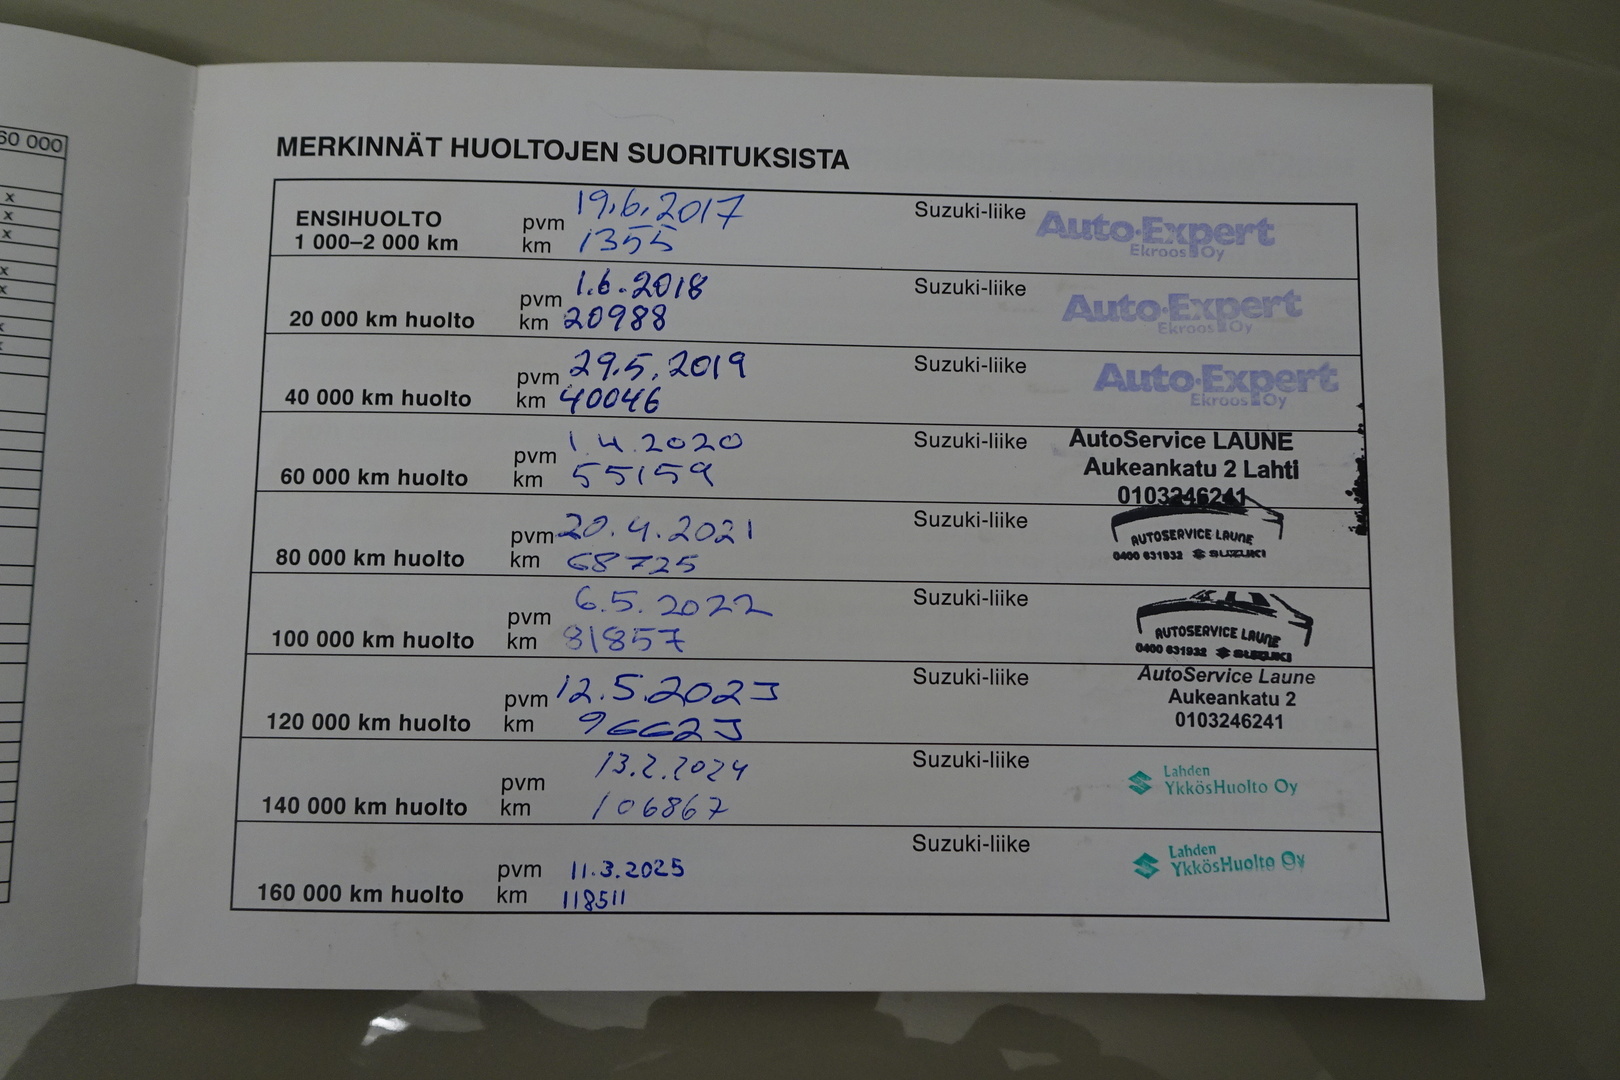 60 000
x
x
x
x
x
x
x
MERKINNÄT HUOLTOJEN SUORITUKSISTA
ENSIHUOLTO
1 000–2 000 km
pvm 19.6.2017
km 1355
Suzuki-liike
Auto-Expert
Ekroos Oy
20 000 km huolto
pvm 1.6.2018
km 20988
Suzuki-liike
Auto-Expert
Ekroos Oy
40 000 km huolto
pvm 29.5.2019
km 40046
Suzuki-liike
Auto-Expert
Ekroos Oy
60 000 km huolto
pvm 1.4.2020
km 55159
Suzuki-liike
AutoService LAUNE
Aukeankatu 2 Lahti
0103246241
80 000 km huolto
pvm 20.4.2021
km 68725
Suzuki-liike
AUTOSERVICE LAUNE
0400 631932 SUZUKI
100 000 km huolto
pvm 6.5.2022
km 81857
Suzuki-liike
AUTOSERVICE LAUNE
0400 631932 SUZUKI
120 000 km huolto
pvm 12.5.2023
km 96623
Suzuki-liike
AutoService Laune
Aukeankatu 2
0103246241
140 000 km huolto
pvm 13.2.2024
km 106867
Suzuki-liike
Lahden
YkkösHuolto Oy
160 000 km huolto
pvm 11.3.2025
km 118511
Suzuki-liike
Lahden
YkkösHuolto Oy